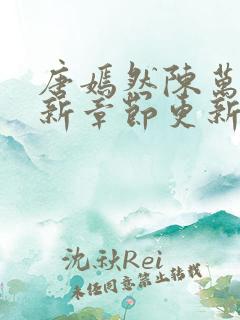 唐嫣然陳萬
新章節更新
沈秋Rei
未经同意禁止转载